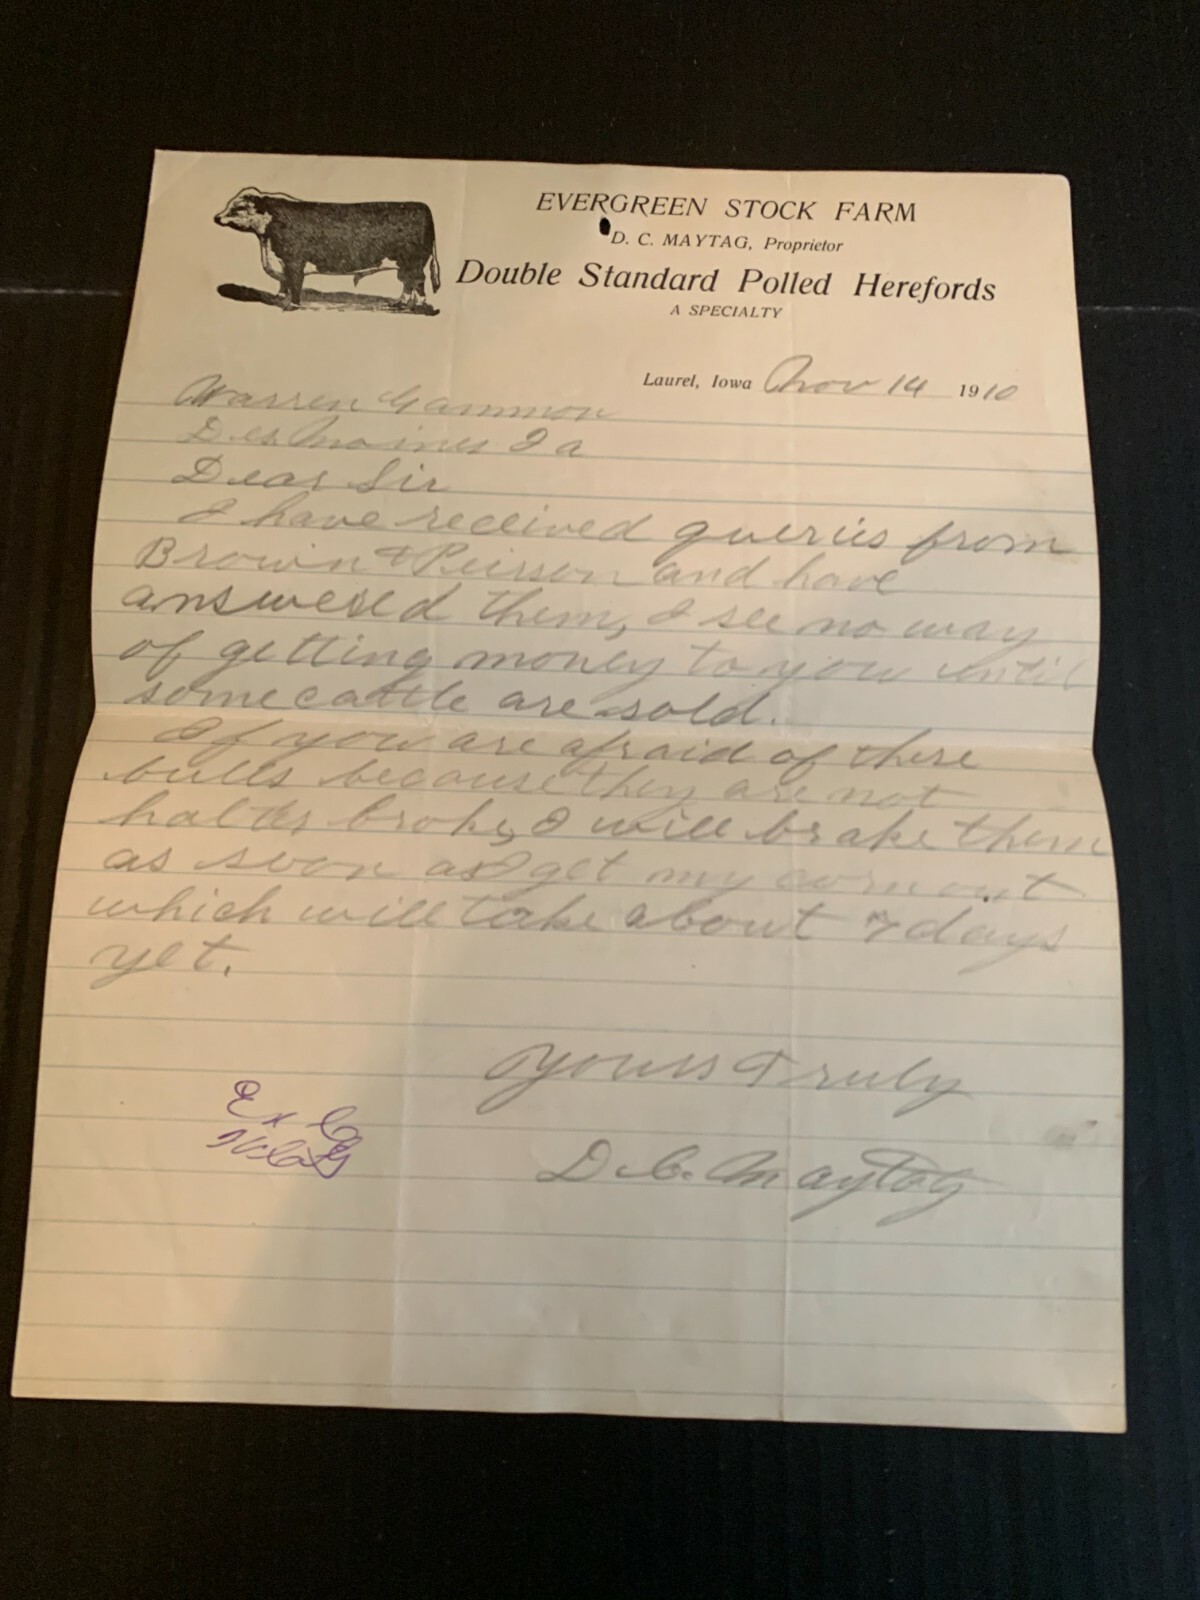 EVERGREEN STOCK FARM
D. C. MAYTAG, Proprietor
Double Standard Polled Herefords
A SPECIALTY
Laurel, Iowa Nov 14 1910
Warren Gammon
Des Moines Ia
Dear Sir
I have received queries from
Brown & Peirson and have
answered them, I see no way
of getting money to you until
some cattle are sold.
If you are afraid of these
bulls because they are not
halter broke, I will brake them
as soon as I get my corn out
which will take about 7 days
yet.
Yours Truly
D. C. Maytag
Ex C